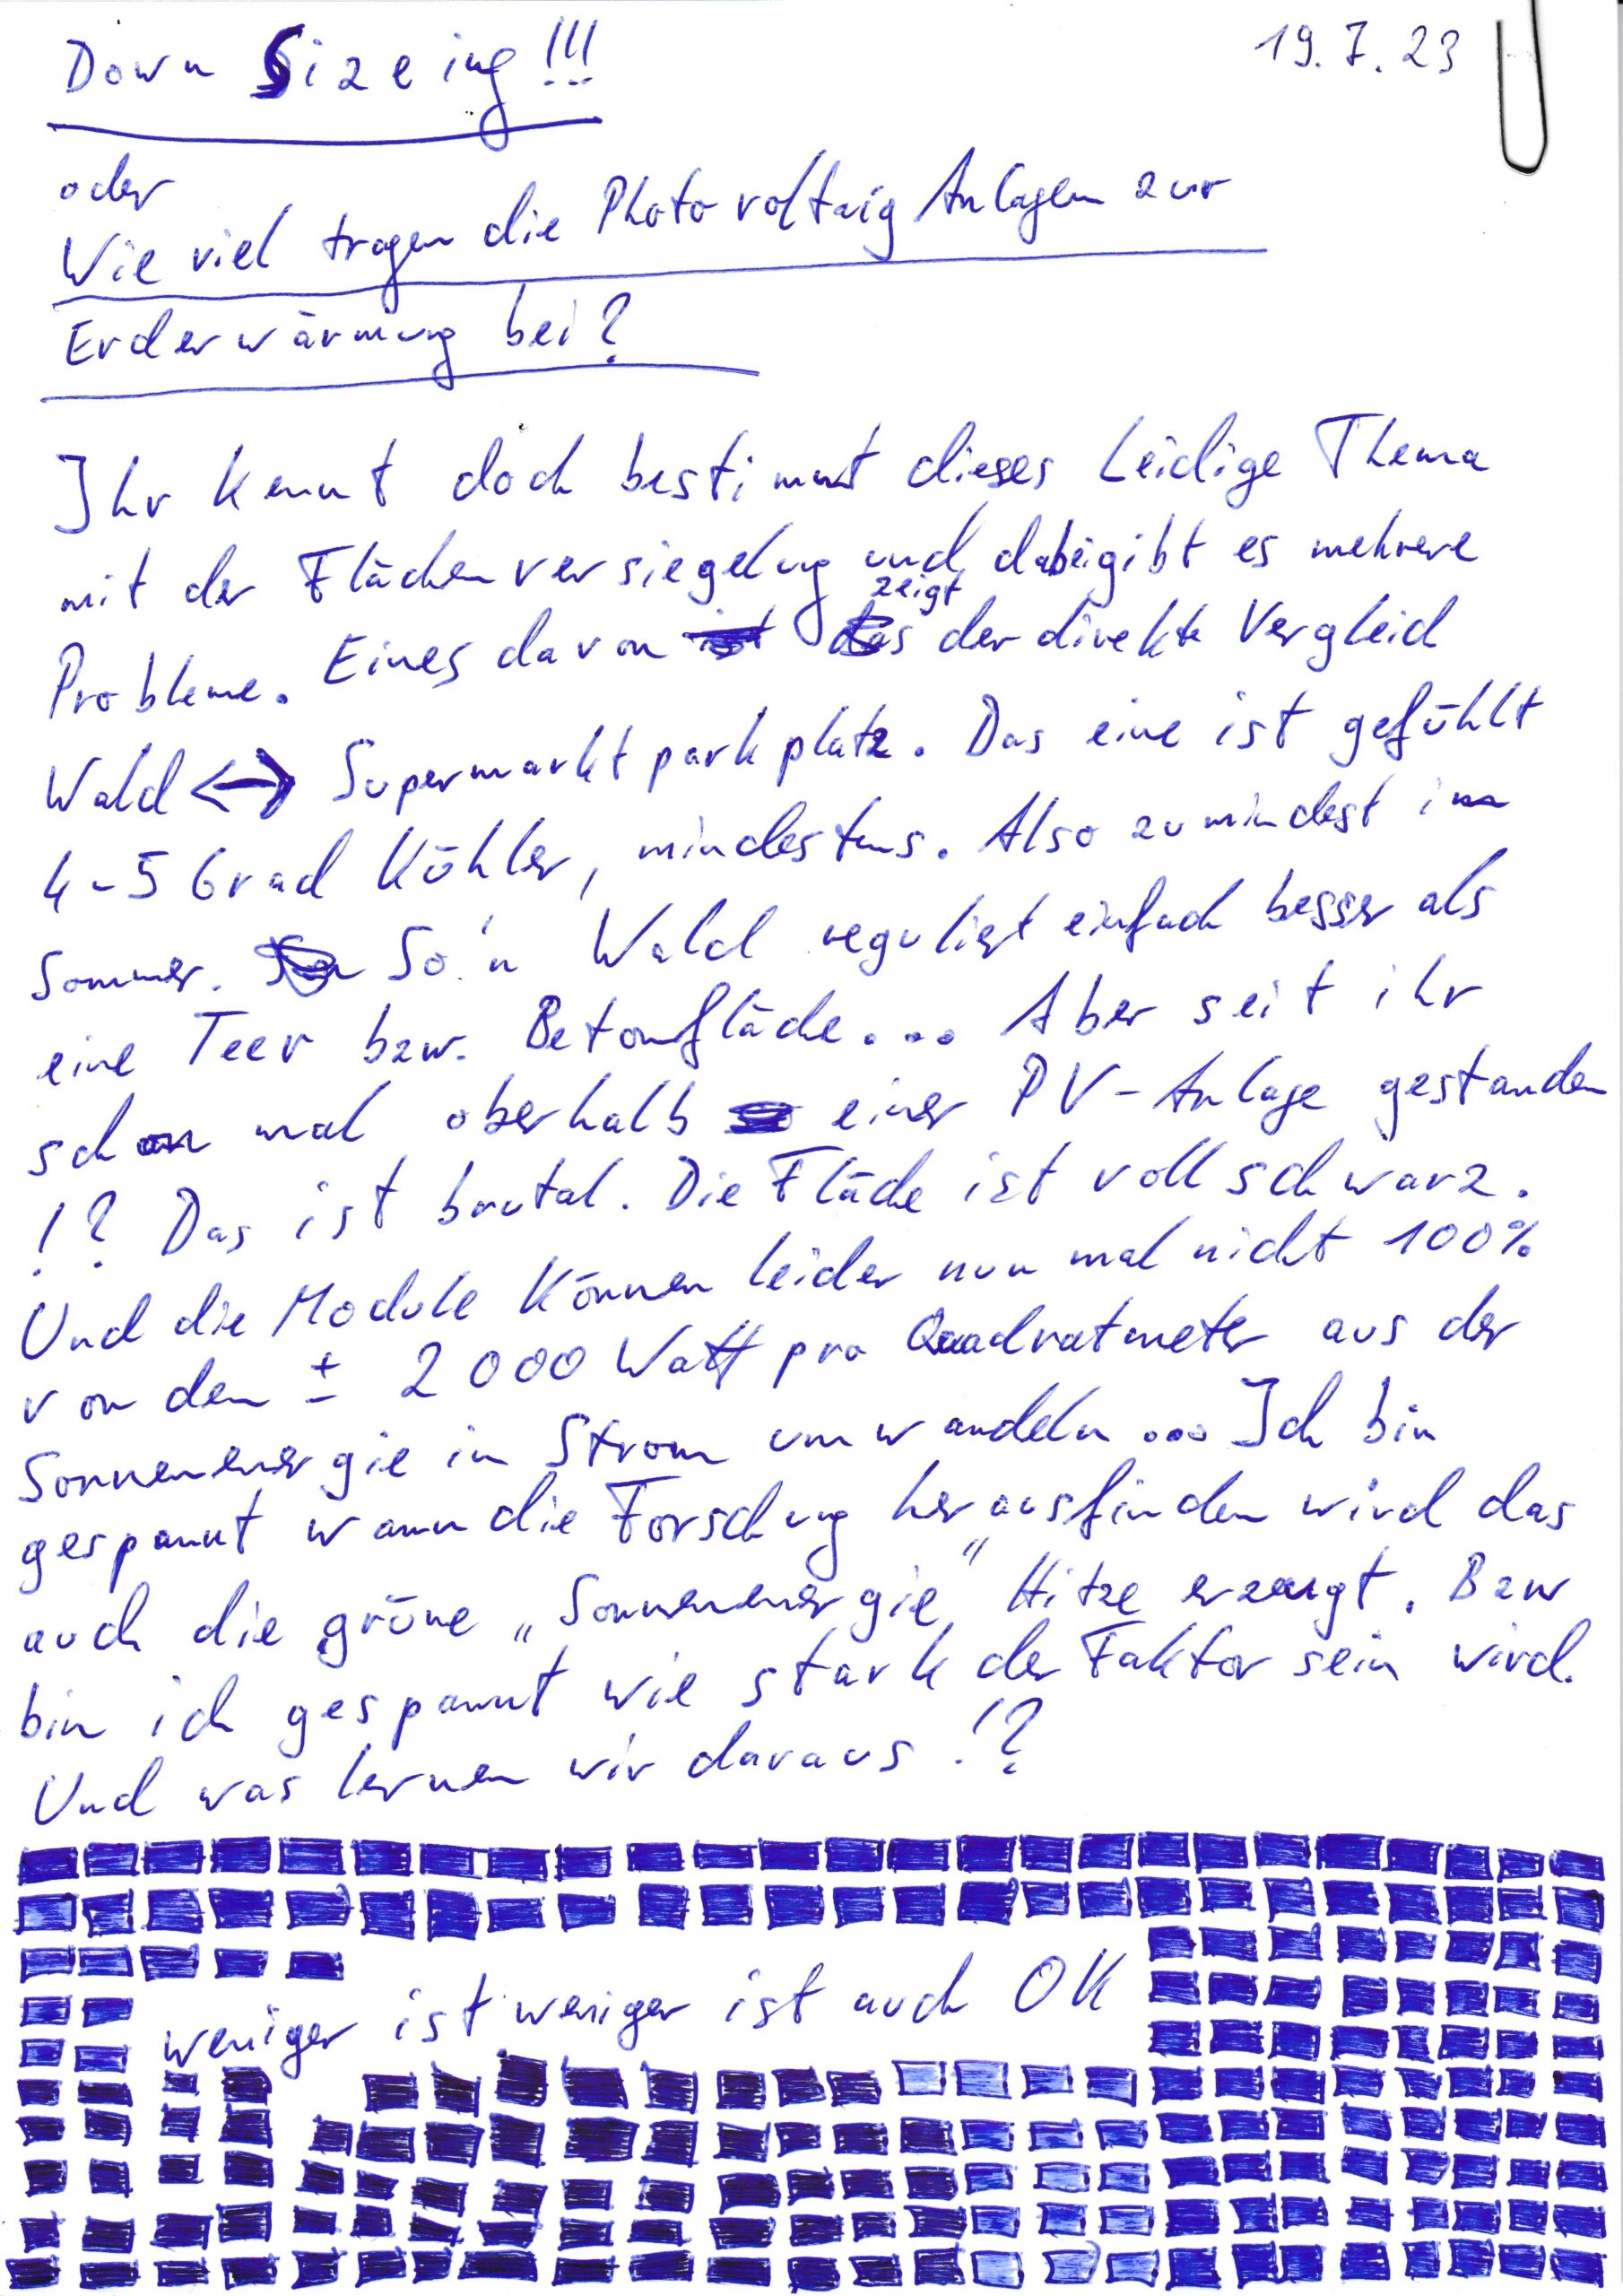 19.7.23
Down Sizeing!!!
oder
Wie viel tragen die Photovoltaig Anlagen zur
Erderwärmung bei?
Ihr kennt doch bestimmt dieses Leidige Thema
mit der Flächenversiegelung und dabei gibt es mehrere
Probleme. Eines davon zeigt der direkte Vergleich
Wald <-> Supermarktparkplatz. Das eine ist gefühlt
4-5 Grad Kühler, mindestens. Also zumindest im
Sommer. So'n Wald reguliert einfach besser als
eine Teer bzw. Betonfläche... Aber seit ihr
schon mal oberhalb einer PV-Anlage gestanden
!? Das ist brutal. Die Fläche ist voll schwarz.
Und die Module Können leider nun mal nicht 100%
von den ± 2000 Watt pro Quadratmeter aus der
Sonnenenergie in Strom umwandeln... Ich bin
gespannt wann die Forschung herausfinden wird das
auch die grüne „Sonnenenergie" Hitze erzeugt. Bzw
bin ich gespannt wie stark der Faktor sein wird.
Und was lernen wir daraus!?
weniger ist weniger ist auch OK